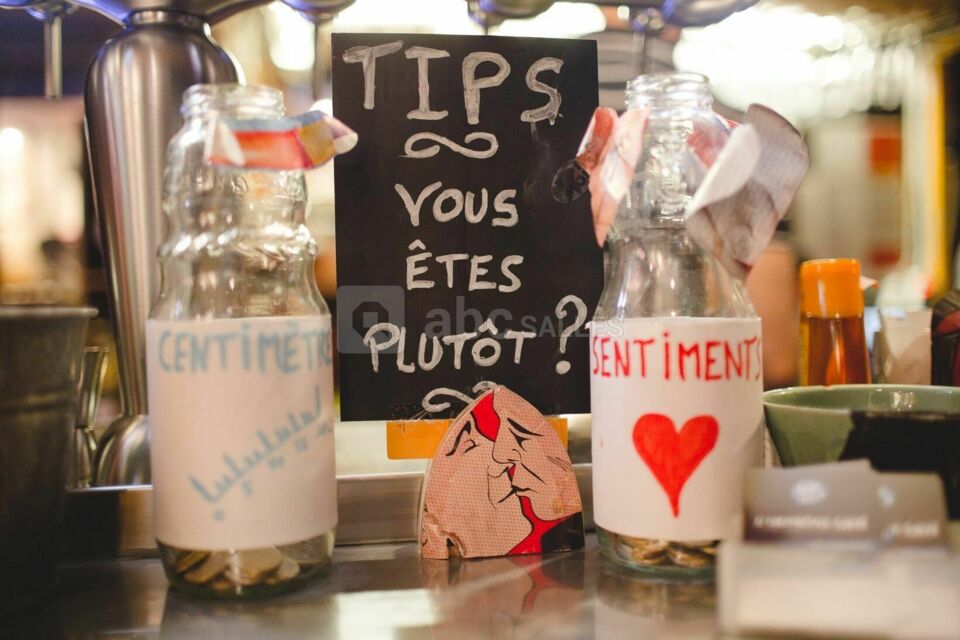 TIPS
VOUS
ÊTES
PLUTÔT ?
abc SALLES
CENTIMÈTR
SENTIMENTS